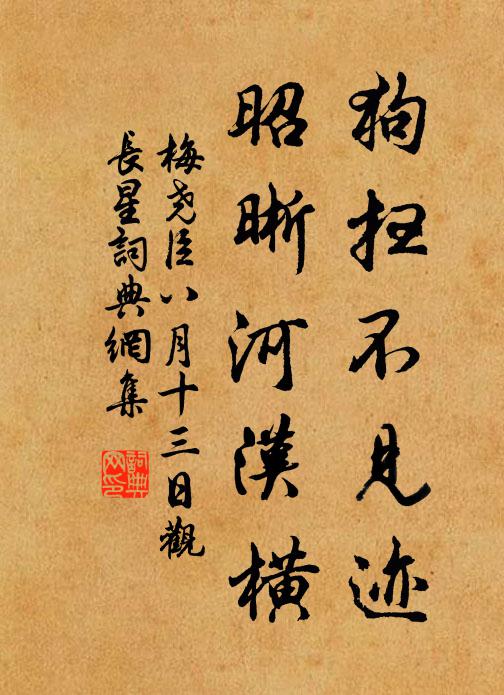 狗枉不见迹
昭晰河漢橫
梅尧臣八月十三日觀
長星詞典網集
詞典
网印